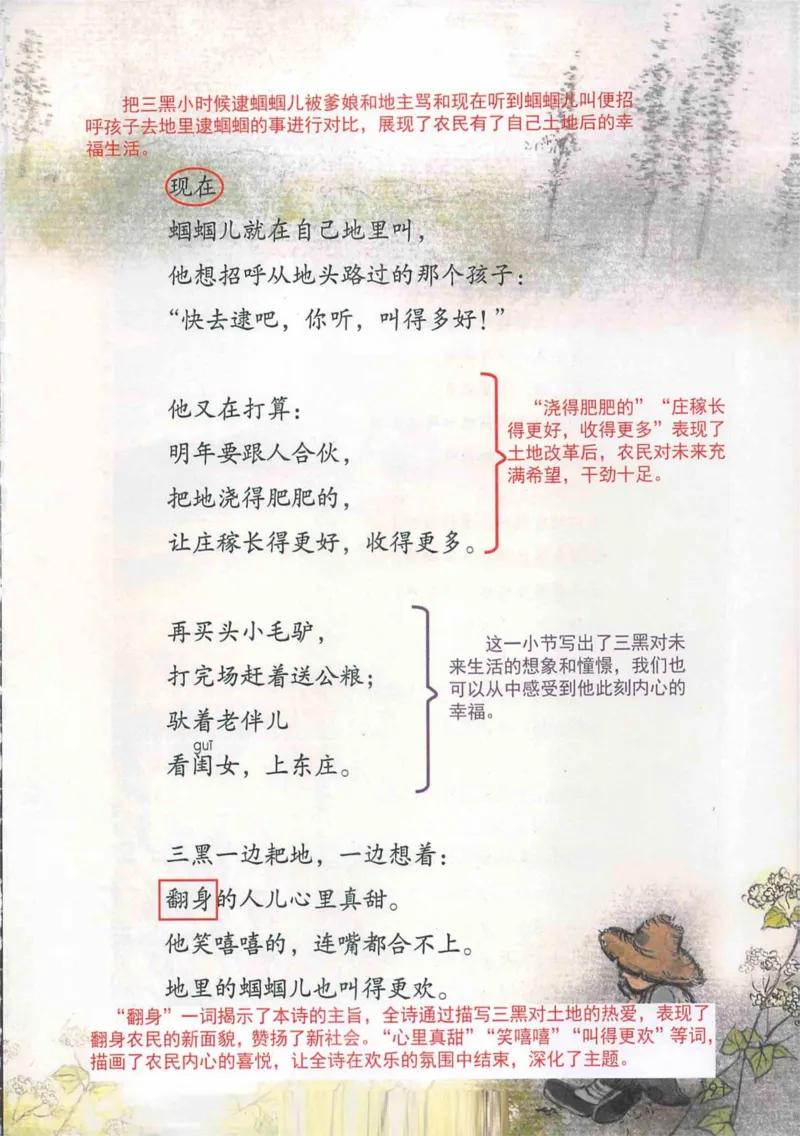 把三黑小时候逮蝈蝈儿被爹娘和地主骂和现在听到蝈蝈儿叫便招
呼孩子去地里逮蝈蝈的事进行对比，展现了农民有了自己土地后的幸
福生活。
现在
蝈蝈儿就在自己地里叫，
他想招呼从地头路过的那个孩子：
“快去逮吧，你听，叫得多好！”
他又在打算：
明年要跟人合伙，
把地浇得肥肥的，
让庄稼长得更好，收得更多。
“浇得肥肥的”“庄稼长
得更好，收得更多”表现了
土地改革后，农民对未来充
满希望，干劲十足。
再买头小毛驴，
打完场赶着送公粮；
驮着老伴儿
guī
看闺女，上东庄。
这一小节写出了三黑对未
来生活的想象和憧憬，我们也
可以从中感受到他此刻内心的
幸福。
三黑一边耙地，一边想着：
翻身的人儿心里真甜。
他笑嘻嘻的，连嘴都合不上。
地里的蝈蝈儿也叫得更欢。
“翻身”一词揭示了本诗的主旨，全诗通过描写三黑对土地的热爱，表现了
翻身农民的新面貌，赞扬了新社会。“心里真甜”“笑嘻嘻”“叫得更欢”等词，
描画了农民内心的喜悦，让全诗在欢乐的氛围中结束，深化了主题。